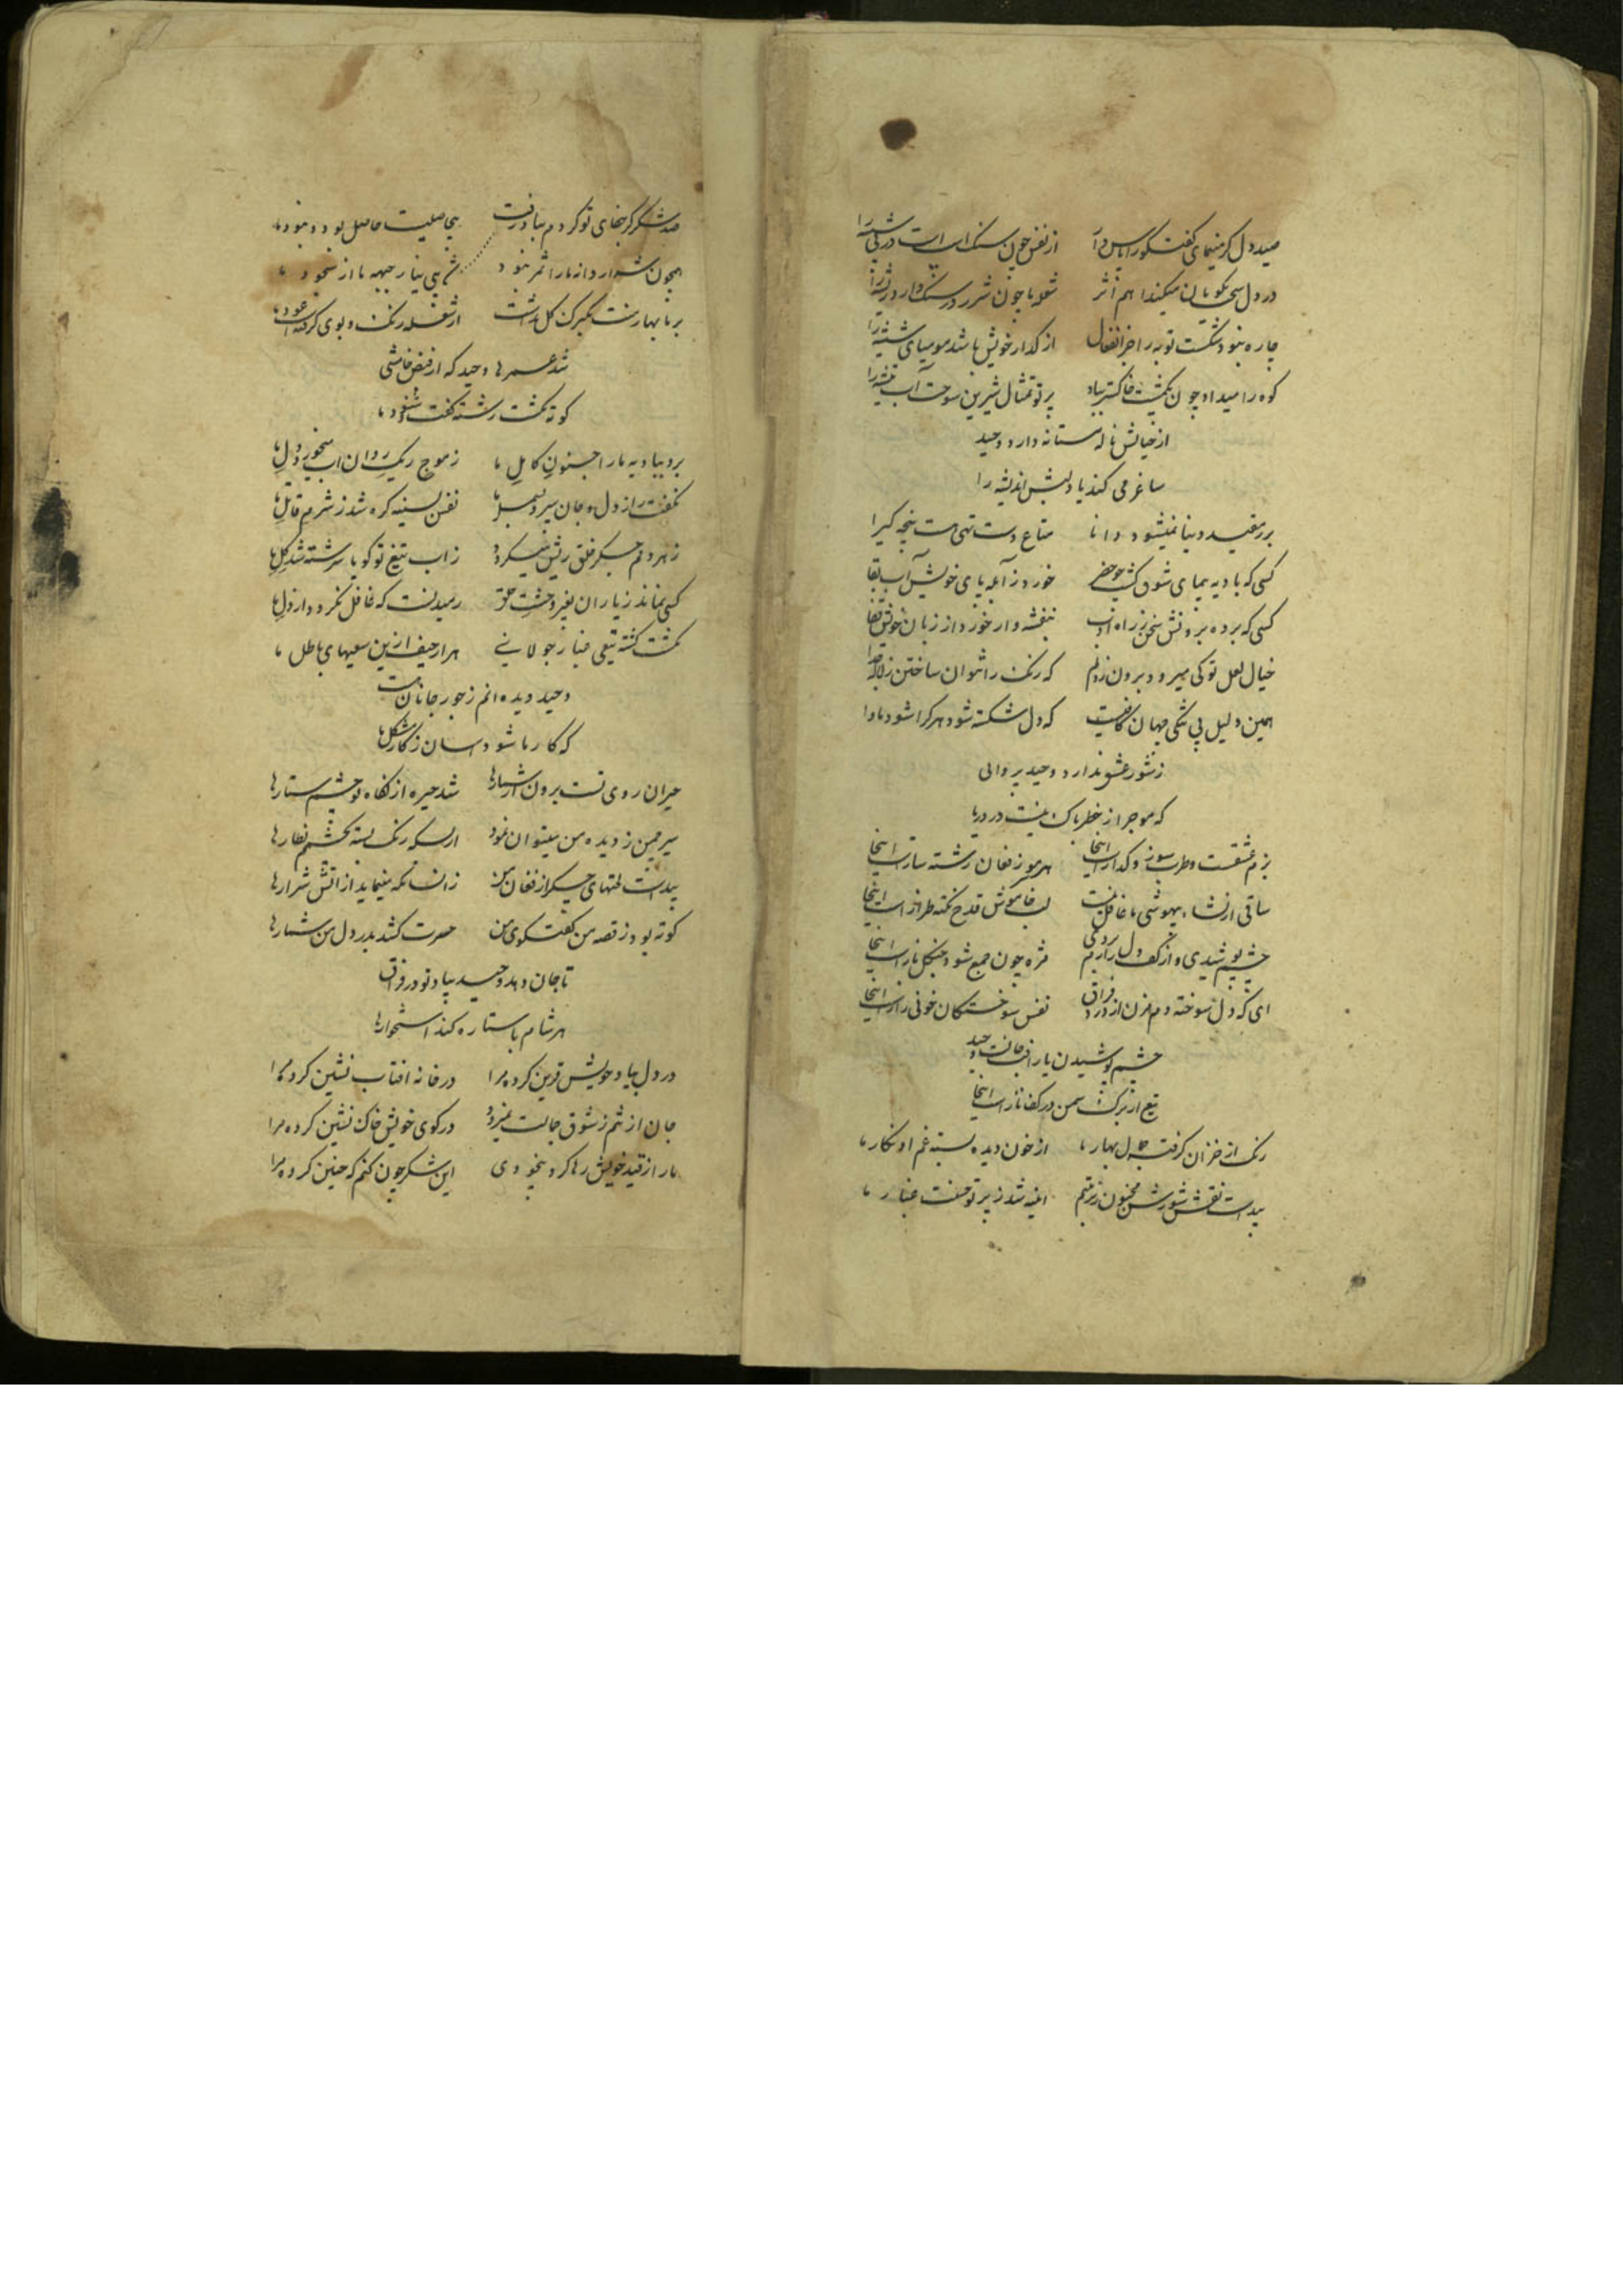 صید دل کر مینمای گفتگو را پاس دار از نفس چون سنک است در پی شیشه را
در دل سخن کویان میکند اهم اثر شعله ها چون شرر در سنک دارد ریشه را
چاره نبود شکست توبه را جز انفعال از کداز خویش باشد مومیای شیشه را
کوه را میداد چون یکمشت خاکستر بباد پرتو تمثال شیرین سوخت آب تیشه را
از خیالش ناله مستانه دارد وحید
ساغر می کند یاد لبش اندیشه را
بر مقید دنیا نمیشود دانا متاع دست تهی هست پنجه کیرا
کسی که بادیه پیمای شوق کشت چو خضر خورد ز آبله پای خویش آب بقا
کسی که برده برونش سخن ز راه ادب بنفشه وار خورد از زبان خویش قفا
خیال لعل تو کی میرود برون ز دلم که رنک را نتوان ساختن ز لاله جدا
همین دلیل پی تنکی جهان کافیست که دل شکسته شود هر کرا شود ماوا
ز شور عشق ندارد وحید پروائی
که موج را ز خطر باک نیست در دریا
بزم عشقست و طرب سوز و کداز است اینجا هر سر موز فغان رشته ساز است اینجا
ساقی از نشاء بیهوشی ما غافل نیست لب خاموش قدح نکته طراز است اینجا
چشم پوشیدی و از کف دل زارم بردی مژه چون جمع شود چنکل باز است اینجا
ای که دل سوخته دم مزن از درد فراق نفس سوختکان خونی راز است اینجا
چشم پوشیدن یار افت جانست وحید
تیغ از برک سمن در کف ناز است اینجا
رنک از خزان کرفت دل بهار ما از خون دیده بسته غم او نکار ما
پیداست نقش شورش مجنون ز تربتم اینه شد ز پرتو حسنت غبار ما
صد شکر کر جفای تو کردم بباد رفت بیحاصلیست حاصل بود و نبود ما
همچون شرار دانه ما را ثمر نبود
بر ما بهار منت یکبرک کل نداشت از شعله رنک و بوی کرفته است عود ما
شد عمرها وحید که از فیض خامشی
کوته نکشت رشته کفت و شنود ما
برد ببادیه ما را جنون کامل ما ز موج ریک روان آب میخورد دل ما
نکفت راز دل و جان سپرد بسمل ما نفس بسینه کره شد ز شرم قاتل ما
ز هر دلم جکر خلق ریش میکردد ز اب تیغ تو کویا سرشته شد کل ما
کسی نماند ز یاران بغیر وحشت خلق رمیدنست که غافل نکردد از دل ما
نکشت کشته تیغی غبار جولانی هزار حیف ازین سعیهای باطل ما
وحید دیده ام ز جور جانانست
که کار ما شود اسان ز کار مشکل ما
حیران روی تست برون از شمارها شد خیره از نکاه تو چشم ستارها
سیر چمن ز دیده من میتوان نمود از بسکه رنک بسته بچشم نظارها
پیداست لختهای جکر از فغان من زانسانکه مینماید از اتش شرارها
کوته بود ز قصه من کفتکوی من حسرت کشد بدرد دل من شمارها
تا جان دهد وحید بیاد تو در فراق
هر شام با ستاره کند استخارها
در دل بیاد خویش قرین کرده مرا در خانه افتاب نشین کرده مرا
جان از تنم ز شوق جمالت نمیرود در کوی خویش خاک نشین کرده مرا
ما را ز قید خویش رها کرد بیخودی این شکر چون کنم که چنین کرده مرا